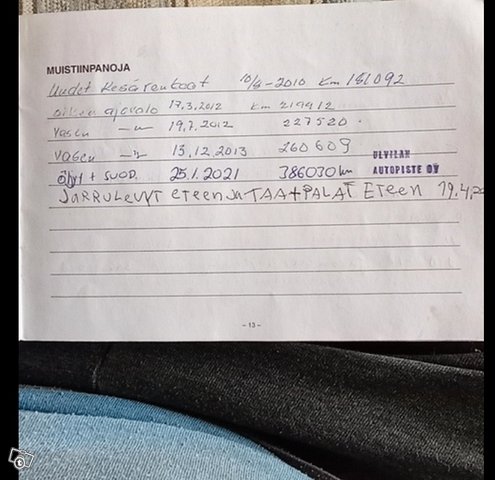 MUISTIINPANOJA
Uudet Kesärenkaat 10/8-2010 Km 181092
oikea ajovalo 17.3.2012 Km 219912
Vasen -"- 19.7.2012 227520.
Vasen -"- 13.12.2013 260609
ULVILAN
Öljyt + SUOD. 25.1.2021 386030 km AUTOPISTE OY
JARRULEVYT ETEEN JA TAA + PALAT ETEEN 19.4.20
- 13 -